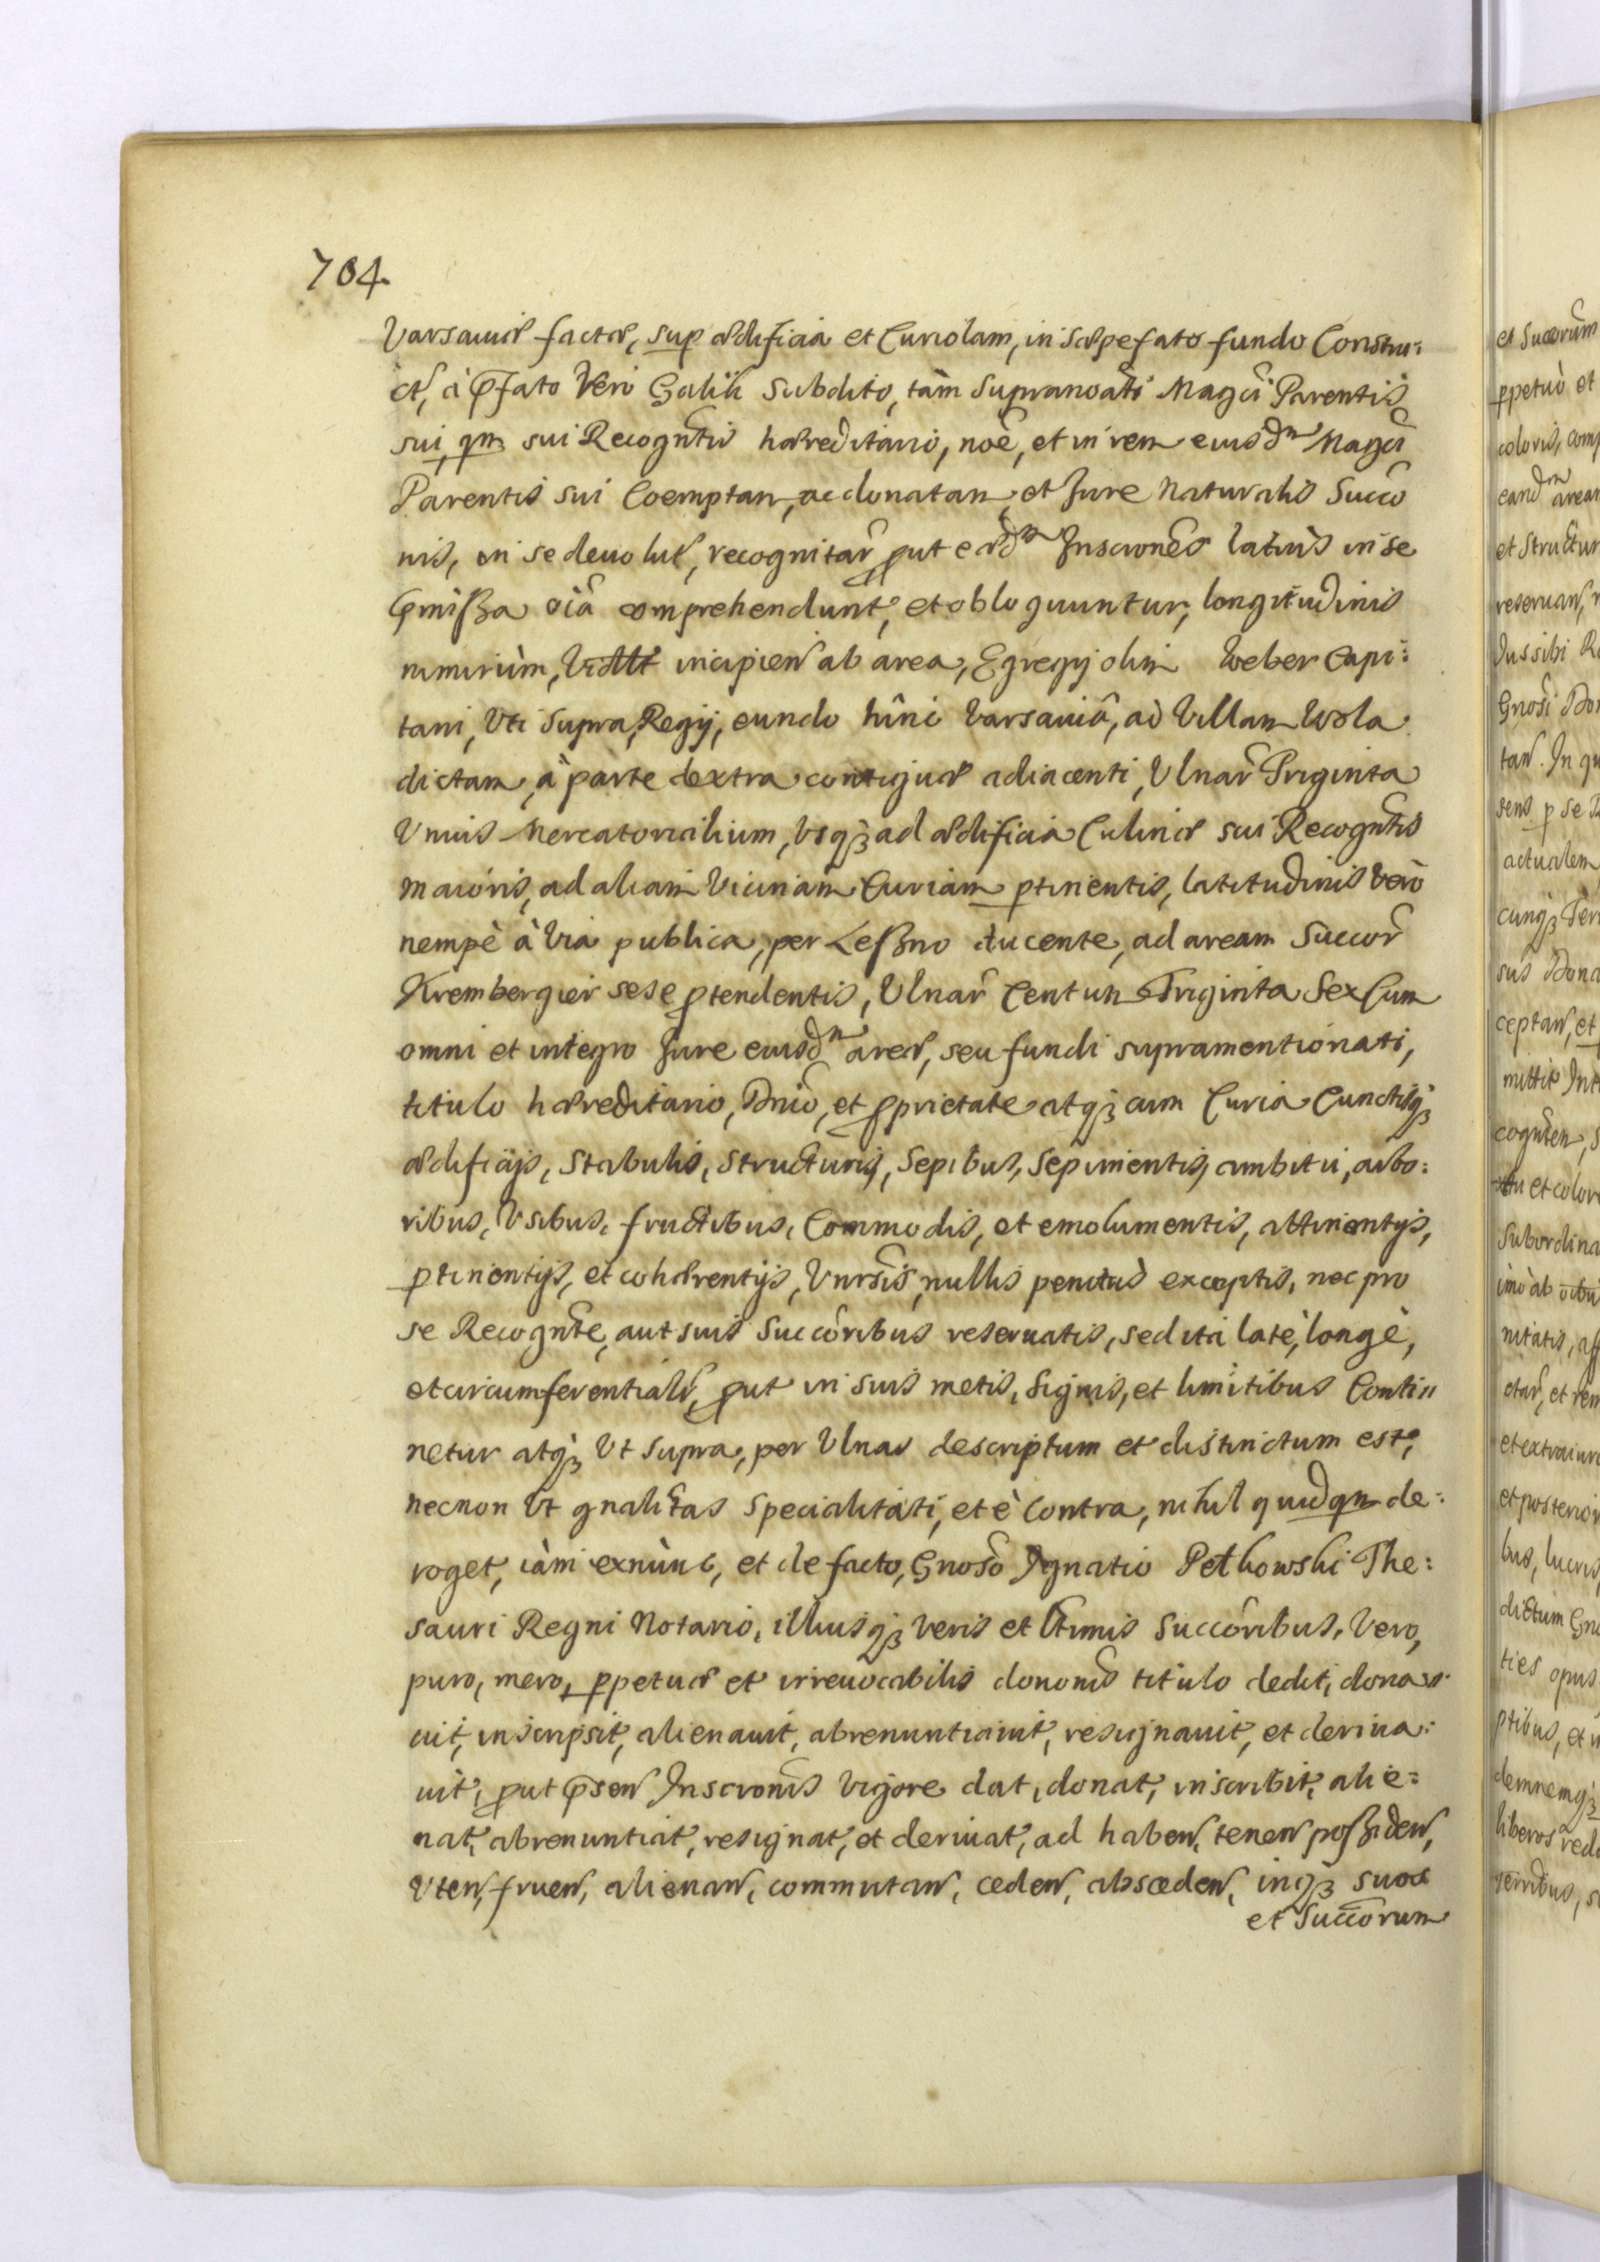 704.
Varsaviæ factæ, sup ædificia et Curiolam, in sæpefato fundo Constru:
ct, à Pfato Vero Galik Subdito, tàm Supranoãti Magci Parentis
sui, qm sui Recogntis hæreditario, noê, et in rem eiusdm Magci
Parentis sui Coemptan, ac donatam, et Jure Naturalis Succo
nis, in se devolut, recognitar, put eædm Inscrones latius in se
Pmissa oiâ comprehendunt, et obloquuntur, longitudinis
nimirùm, incipien ab area, Egregij olim Weber Capi:
tani, Vti Supra, Regij, eundo hinc Varsaviâ, ad Villam Wola
dictam, à parte dextra contiguæ adiacenti, Ulnar Triginta
Vnius Mercatorialium, Vsq ad ædificia Culinæ sui Recogntis
maioris, ad aliam Viciniam Curiam ptinentis, latitudinis verò
nempè à Via publica, per Leszno ducente, ad aream Succor
Krembergier sese ptendentis, Ulnar Centum Triginta Sex Cum
omni et integro Jure eiusdm areæ, seu fundi supramentionati,
titulo hæreditario, Dnio, et pprietate atq cum Curia Cunctisq
ædificijs, Stabulis, Structuris, Sepibus, Sepimentis, ambitu, arbo:
ribus, Vsibus, fructibus, Commodis, et emolumentis, attinentijs,
ptinentijs, et cohærentijs, Vnrsis, nullis penitus exceptis, nec pro
se Recognte, aut suis Succoribus reservatis, sed ita latè, longè,
et circumferentialr, put in suis metis, Signis, et limitibus Conti=
netur atq Vt Supra, per Ulnas descriptum et distinctum est,
necnon Vt gnalitas Specialitati, et è Contra, nihil quidqm de:
roget, iàm exnùnc, et de facto, Gnoso Ignatio Petkowski The:
sauri Regni Notario, illiusq veris et ltimis Succoribus, Vero,
puro, mero, ppetuæ et irrevocabilis dononis titulo dedit, dona=
vit, inscripsit, alienavit, abrenuntiavit, resignavit, et deriva:
vit, put Psen Inscronis Vigore dat, donat, inscribit, alie=
nat, abrenuntiat, resignat, et derivat, ad haben, tenen possiden,
Vten, fruen, alienan, commutan, ceden, absceden, inq suos
et Succorum